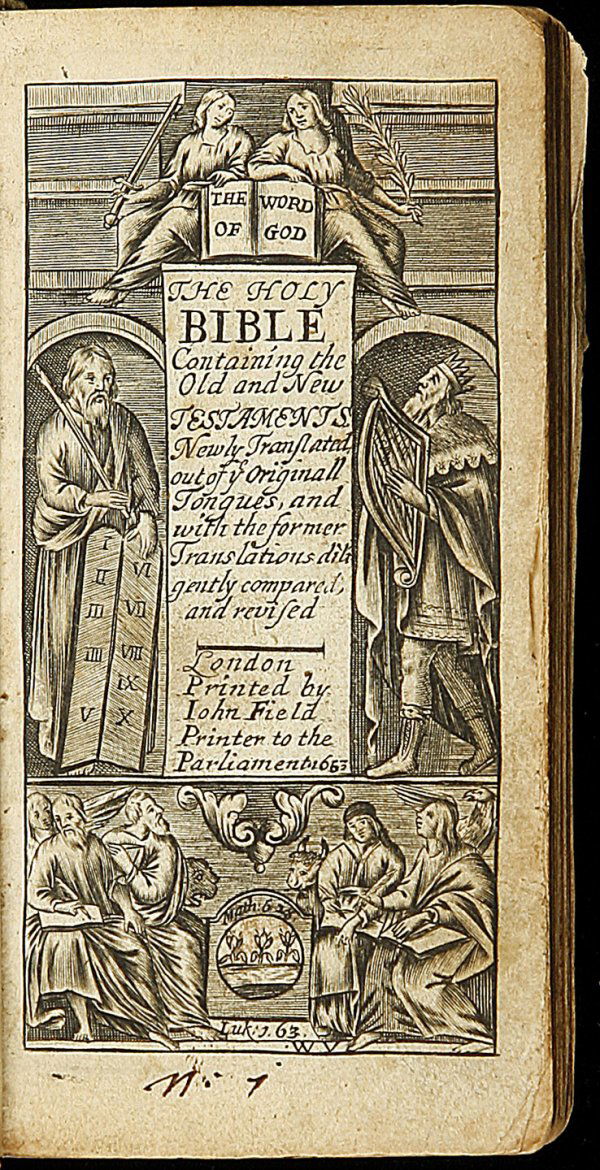 THE WORD
OF GOD
THE HOLY
BIBLE
Containing the
Old and New
TESTAMENTS
Newly Translated
out of yͤ Originall
Tongues, and
with the former
Translations dili
gently compared,
and reviſed
London
Printed by
Iohn Field
Printer to the
Parliament 1653
I
II
III
IIII
V
VI
VII
VIII
IX
X
Math. 6 28
Luk: 1. 63.
W V
N: 1